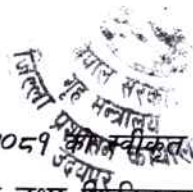 नेपाल सरकार
गृह मन्त्रालय
जिल्ला प्रशासन कार्यालय
उदयपुर
२०८१ को स्वीकृत
तथा